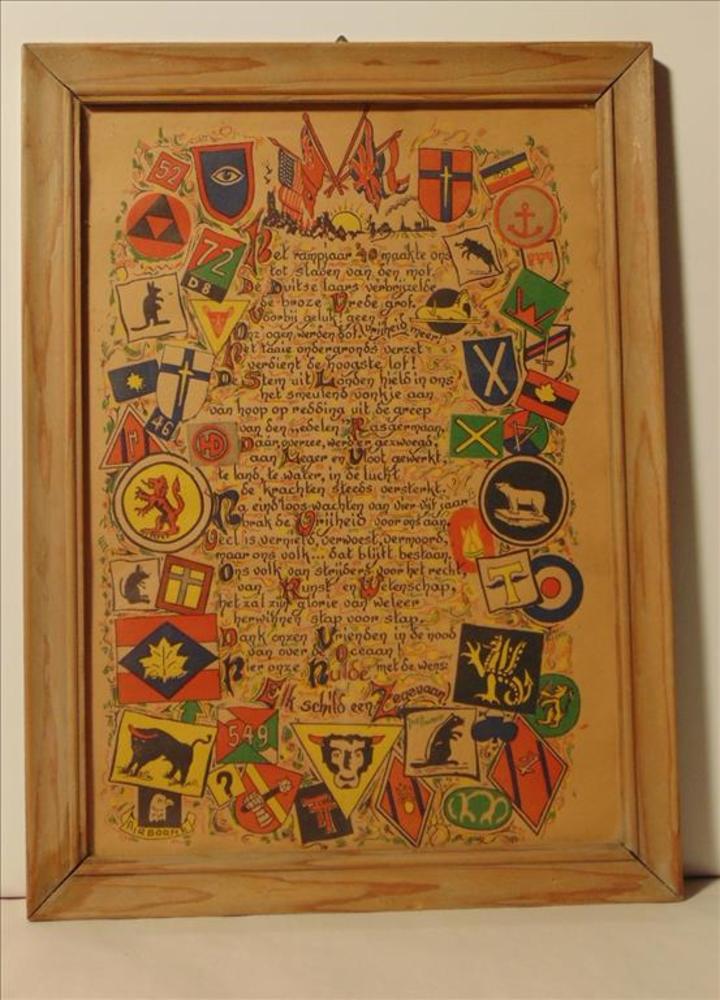 52
72
D8
Het rampjaar '40 maakte ons
tot slaven van den mof.
De Duitse laars verbrijzelde
de broze Vrede grof.
Voorbij geluk! geen Vrijheid meer!
Onz' ogen werden dof.
Het taaie ondergronds verzet
verdient de hoogste lof!
De Stem uit Londen hield in ons
het smeulend vonkje aan
van hoop op redding uit de greep
van den „edelen" Rasgermaan.
Daar, overzee, werd er gezwoegd,
aan Leger en Vloot gewerkt,
te land, te water, in de lucht
de krachten steeds versterkt.
Na eindloos wachten van vier vijf jaar
brak de Vrijheid voor ons aan.
Veel is vernield, verwoest, vermoord,
maar ons volk... dat blijft bestaan.
Ons volk van strijders voor het recht,
van Kunst en Wetenschap,
het zal zijn glorie van weleer
herwinnen stap voor stap.
Dank onzen Vrienden in de nood
van over de Oceaan!
Hier onze Hulde met de wens:
Elk schild een Zegevaan!
46
HD
T
549
?
AIRBORNE